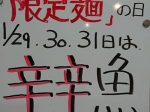 「限定麺」の日
1/29.30.31日は
辛辛魚